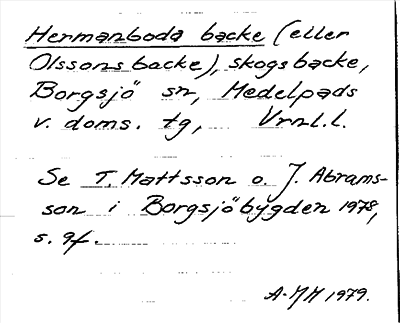 Hermanboda backe (eller
Olssons backe), skogsbacke,
Borgsjö sn, Medelpads
v. doms. tg, Vrnl.l.
Se T. Mattsson o. J. Abrams-
son i Borgsjöbygden 1978,
s. 9f.
A-MH 1979.